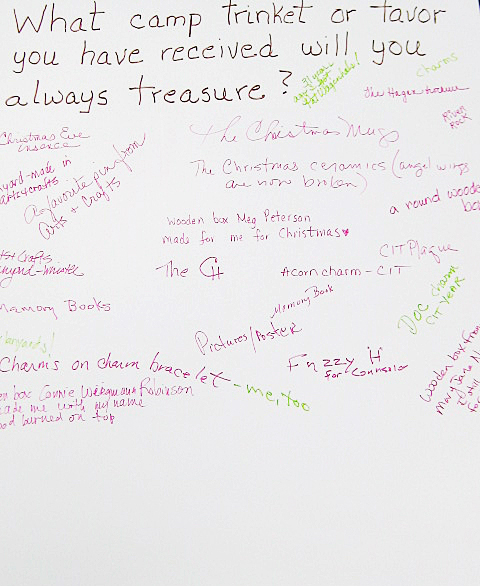 What camp trinket or favor
you have received will you
always treasure?
charms
The Hagen
River
Rock
Christmas Eve
The Christmas Mugs
made in
A favorite pin from
Arts + Crafts
The Christmas ceramics (angel wings
are now broken)
a round wooden
wooden box Meg Peterson
made for me for Christmas
Crafts
CIT Plaque
The CH
Acorn charm - CIT
Memory Books
Memory Book
Doc charm
CIT YEAR
Pictures/Poster
Charms on charm bracelet - me, too
Fuzzy H
for Counselor
wooden box from
Mary Jane
still
box Connie Robinson
made me with my name
burned on top